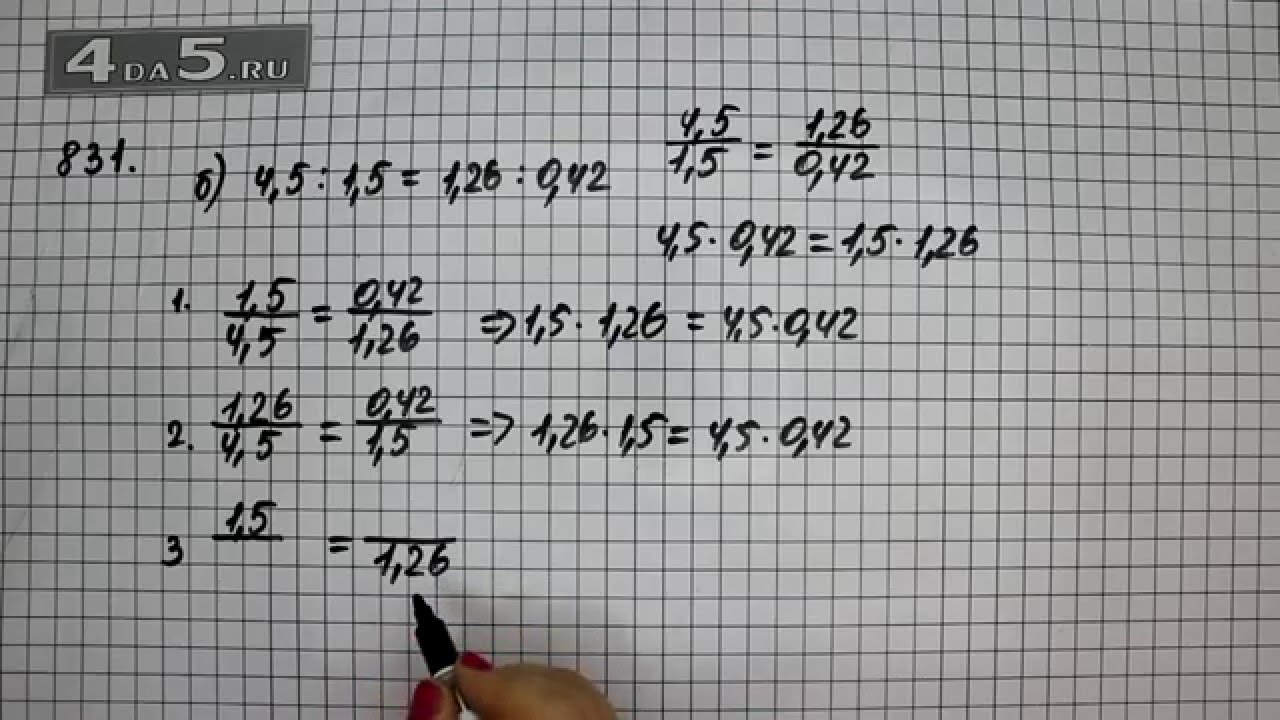 4DA5.RU
831. б) 4,5 : 1,5 = 1,26 : 0,42
4,5/1,5 = 1,26/0,42
4,5 · 0,42 = 1,5 · 1,26
1. 1,5/4,5 = 0,42/1,26 => 1,5 · 1,26 = 4,5 · 0,42
2. 1,26/4,5 = 0,42/1,5 => 1,26 · 1,5 = 4,5 · 0,42
3 1,5/ = /1,26